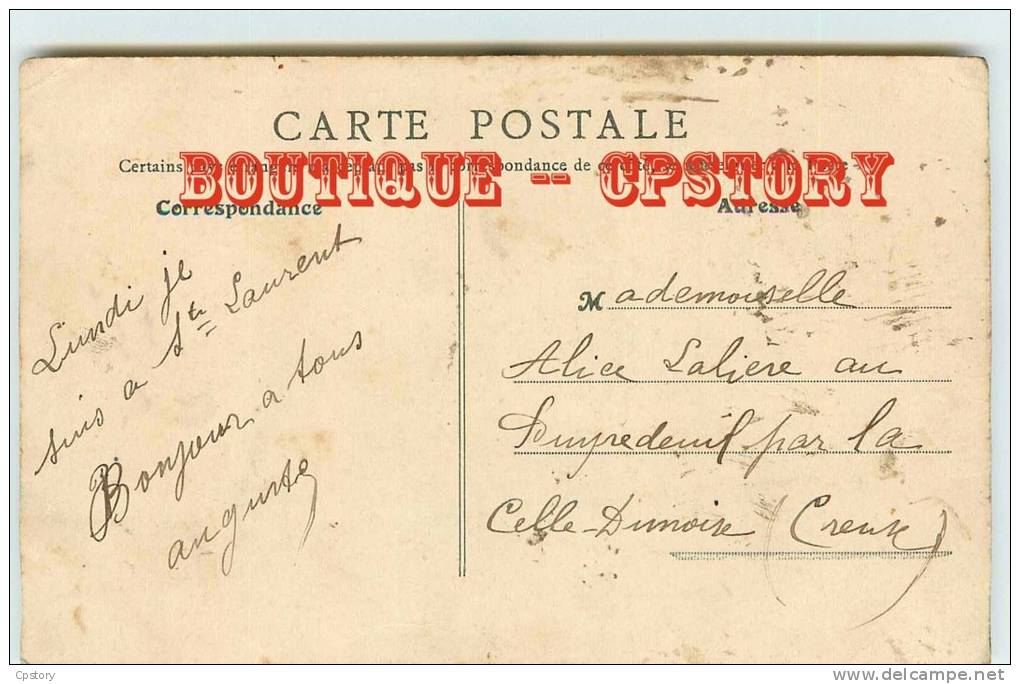 CARTE POSTALE
Certains pas correspondance de
BOUTIQUE -- CPSTORY
Correspondance
Lundi je
suis a St Laurent
Bonjour a tous
auguste
Adresse
Mademoiselle
Alice Laliere au
par la
Celle-Dunoise (Creuse)
Cpstory
delcampe.net